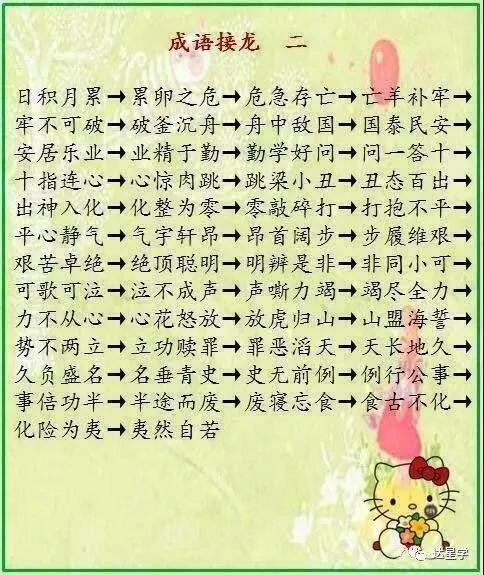 成语接龙 二
日积月累→累卵之危→危急存亡→亡羊补牢→
牢不可破→破釜沉舟→舟中敌国→国泰民安→
安居乐业→业精于勤→勤学好问→问一答十→
十指连心→心惊肉跳→跳梁小丑→丑态百出→
出神入化→化整为零→零敲碎打→打抱不平→
平心静气→气宇轩昂→昂首阔步→步履维艰→
艰苦卓绝→绝顶聪明→明辨是非→非同小可→
可歌可泣→泣不成声→声嘶力竭→竭尽全力→
力不从心→心花怒放→放虎归山→山盟海誓→
势不两立→立功赎罪→罪恶滔天→天长地久→
久负盛名→名垂青史→史无前例→例行公事→
事倍功半→半途而废→废寝忘食→食古不化→
化险为夷→夷然自若